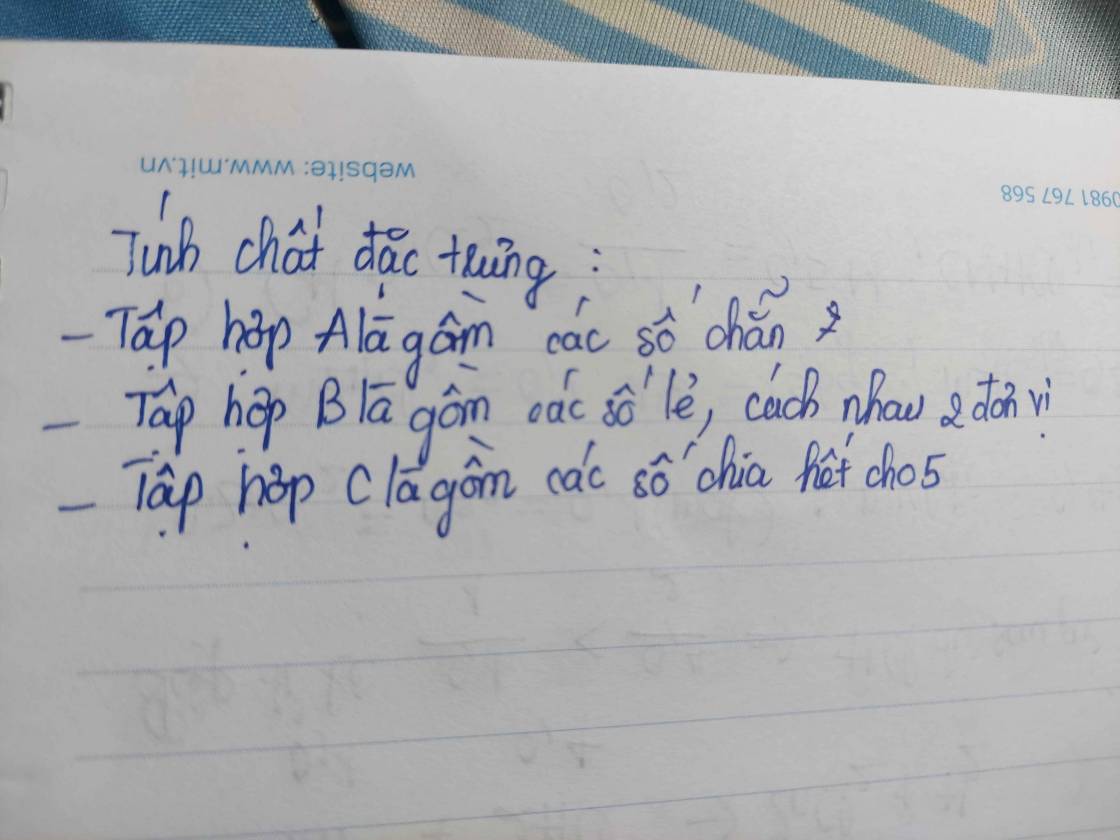 website: www.mit.vn
0981 767 568
Tính chất đặc trưng :
- Tập hợp A là gồm các số chẵn
- Tập hợp B là gồm các số lẻ, cách nhau 2 đơn vị
- Tập hợp C là gồm các số chia hết cho 5